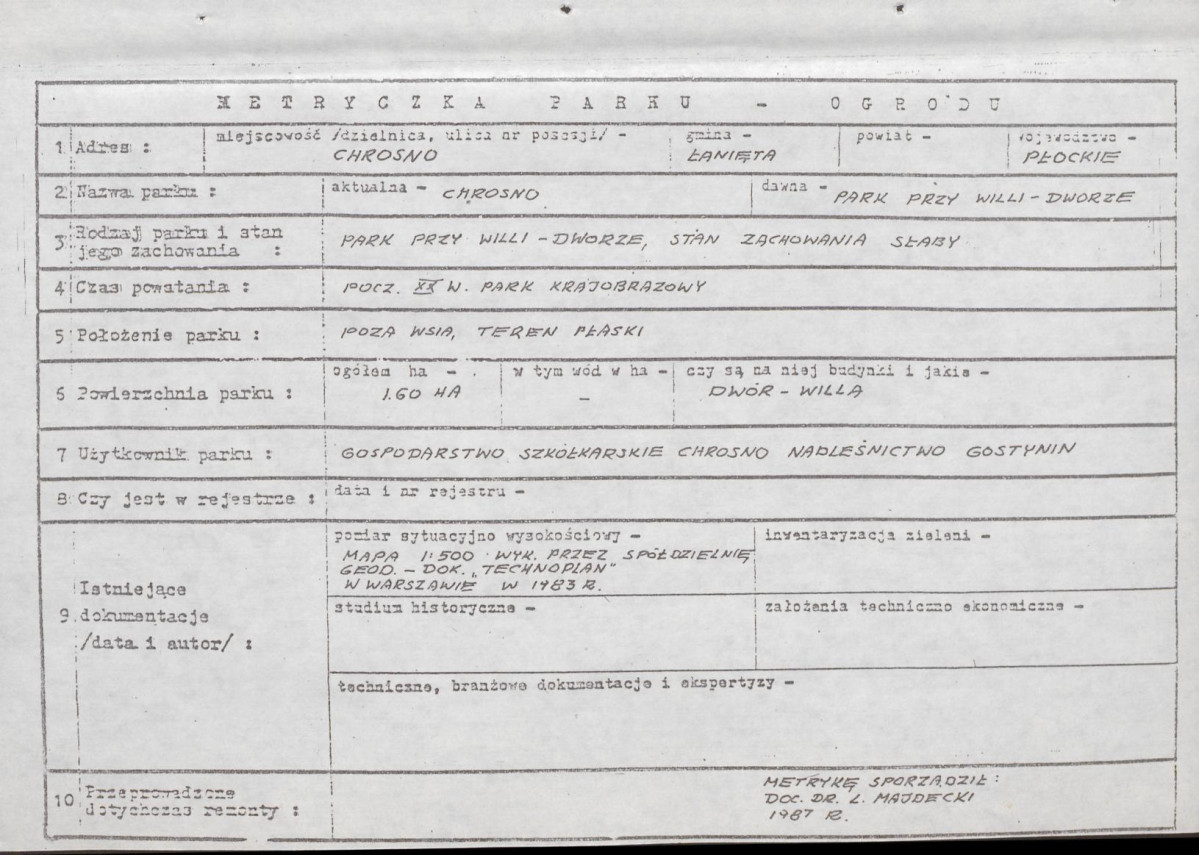 METRYCZKA PARKU - OGRODU
1 Adres :
miejscowość /dzielnica, ulica nr posesji/ -
CHROSNO
gmina -
ŁANIĘTA
powiat -
województwo -
PŁOCKIE
2 Nazwa parku :
aktualna - CHROSNO
dawna - PARK PRZY WILLI - DWORZE
3 Rodzaj parku i stan
jego zachowania :
PARK PRZY WILLI - DWORZE, STAN ZACHOWANIA SŁABY
4 Czas powstania :
POCZ. XX W. PARK KRAJOBRAZOWY
5 Położenie parku :
POZA WSIĄ, TEREN PŁASKI
6 Powierzchnia parku :
ogółem ha -
1.60 HA
w tym wód w ha -
-
czy są na niej budynki i jakie -
DWÓR - WILLA
7 Użytkownik parku :
GOSPODARSTWO SZKÓŁKARSKIE CHROSNO NADLEŚNICTWO GOSTYNIN
8 Czy jest w rejestrze :
data i nr rejestru -
9 Istniejące
dokumentacje
/data i autor/ :
pomiar sytuacyjno wysokościowy -
MAPA 1:500 WYK. PRZEZ SPÓŁDZIELNIĘ
GEOD. - DOK. „TECHNOPLAN"
W WARSZAWIE W 1983 R.
inwentaryzacja zieleni -
studium historyczne -
założenia techniczno ekonomiczne -
techniczne, branżowe dokumentacje i ekspertyzy -
10 Przeprowadzone
dotychczas remonty :
METRYKĘ SPORZĄDZIŁ :
DOC. DR. L. MAJDECKI
1987 R.